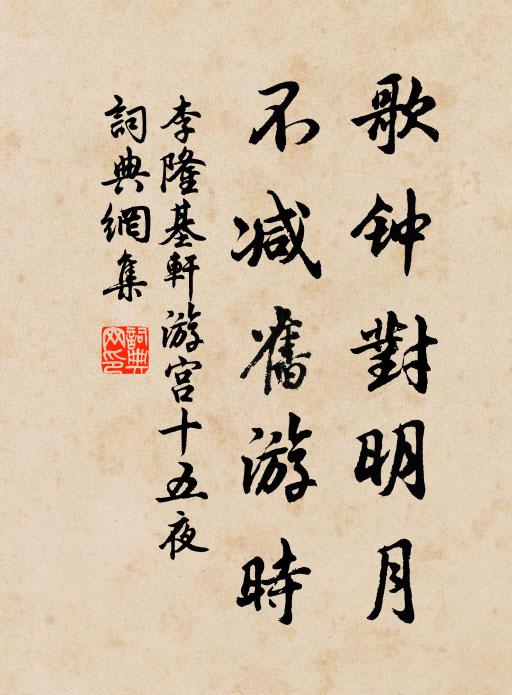 歌钟對明月
不减舊游時
李隆基軒游宫十五夜
詞典網集
詞典网印